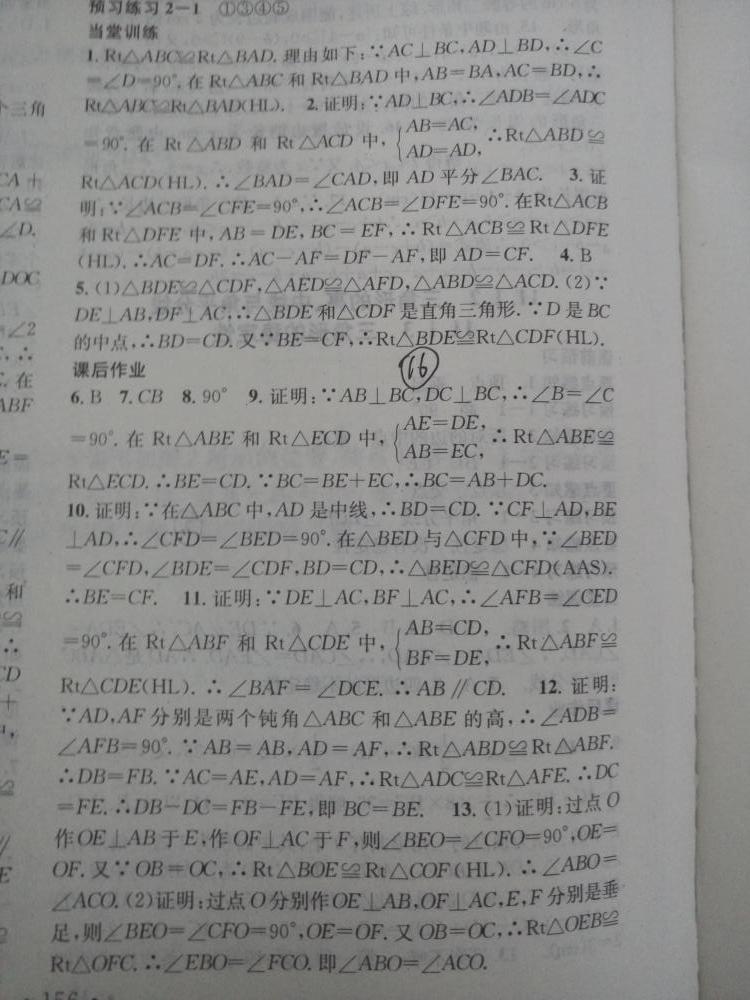 预习练习2-1 ①③④⑤
当堂训练
1. Rt△ABC≌Rt△BAD. 理由如下:∵AC⊥BC,AD⊥BD,∴∠C
=∠D=90°. 在 Rt△ABC 和 Rt△BAD 中,AB=BA,AC=BD,∴
Rt△ABC≌Rt△BAD(HL). 2. 证明:∵AD⊥BC,∴∠ADB=∠ADC
=90°. 在 Rt△ABD 和 Rt△ACD 中, {AB=AC, AD=AD, ∴Rt△ABD≌
Rt△ACD(HL). ∴∠BAD=∠CAD,即 AD 平分∠BAC. 3. 证
明:∵∠ACB=∠CFE=90°,∴∠ACB=∠DFE=90°. 在Rt△ACB
和 Rt△DFE 中,AB=DE,BC=EF,∴Rt△ACB≌Rt△DFE
(HL). ∴AC=DF. ∴AC-AF=DF-AF,即 AD=CF. 4. B
5. (1)△BDE≌△CDF,△AED≌△AFD,△ABD≌△ACD. (2)∵
DE⊥AB,DF⊥AC,∴△BDE 和△CDF 是直角三角形. ∵D 是 BC
的中点,∴BD=CD. 又∵BE=CF,∴Rt△BDE≌Rt△CDF(HL).
课后作业 16
6. B 7. CB 8. 90° 9. 证明:∵AB⊥BC,DC⊥BC,∴∠B=∠C
=90°. 在 Rt△ABE 和 Rt△ECD 中, {AE=DE, AB=EC, ∴Rt△ABE≌
Rt△ECD. ∴BE=CD. ∵BC=BE+EC,∴BC=AB+DC.
10. 证明:∵在△ABC 中,AD 是中线,∴BD=CD. ∵CF⊥AD,BE
⊥AD,∴∠CFD=∠BED=90°. 在△BED 与△CFD 中,∵∠BED
=∠CFD,∠BDE=∠CDF,BD=CD,∴△BED≌△CFD(AAS).
∴BE=CF. 11. 证明:∵DE⊥AC,BF⊥AC,∴∠AFB=∠CED
=90°. 在 Rt△ABF 和 Rt△CDE 中, {AB=CD, BF=DE, ∴Rt△ABF≌
Rt△CDE(HL). ∴∠BAF=∠DCE. ∴AB∥CD. 12. 证明:
∵AD,AF 分别是两个钝角△ABC 和△ABE 的高,∴∠ADB=
∠AFB=90°. ∵AB=AB,AD=AF,∴Rt△ABD≌Rt△ABF.
∴DB=FB. ∵AC=AE,AD=AF,∴Rt△ADC≌Rt△AFE. ∴DC
=FE. ∴DB-DC=FB-FE,即 BC=BE. 13. (1)证明:过点 O
作 OE⊥AB 于 E,作 OF⊥AC 于 F,则∠BEO=∠CFO=90°,OE=
OF. 又∵OB=OC,∴Rt△BOE≌Rt△COF(HL). ∴∠ABO=
∠ACO. (2)证明:过点 O 分别作 OE⊥AB,OF⊥AC,E,F 分别是垂
足,则∠BEO=∠CFO=90°,OE=OF. 又 OB=OC,∴Rt△OEB≌
Rt△OFC. ∴∠EBO=∠FCO. 即∠ABO=∠ACO.
156
个三角
CA+
CA≌
∠D.
DOC
∠2
∴
在
ABF
E=
C∥
和
≌
∴
CD
+
≌
∥
E
≌